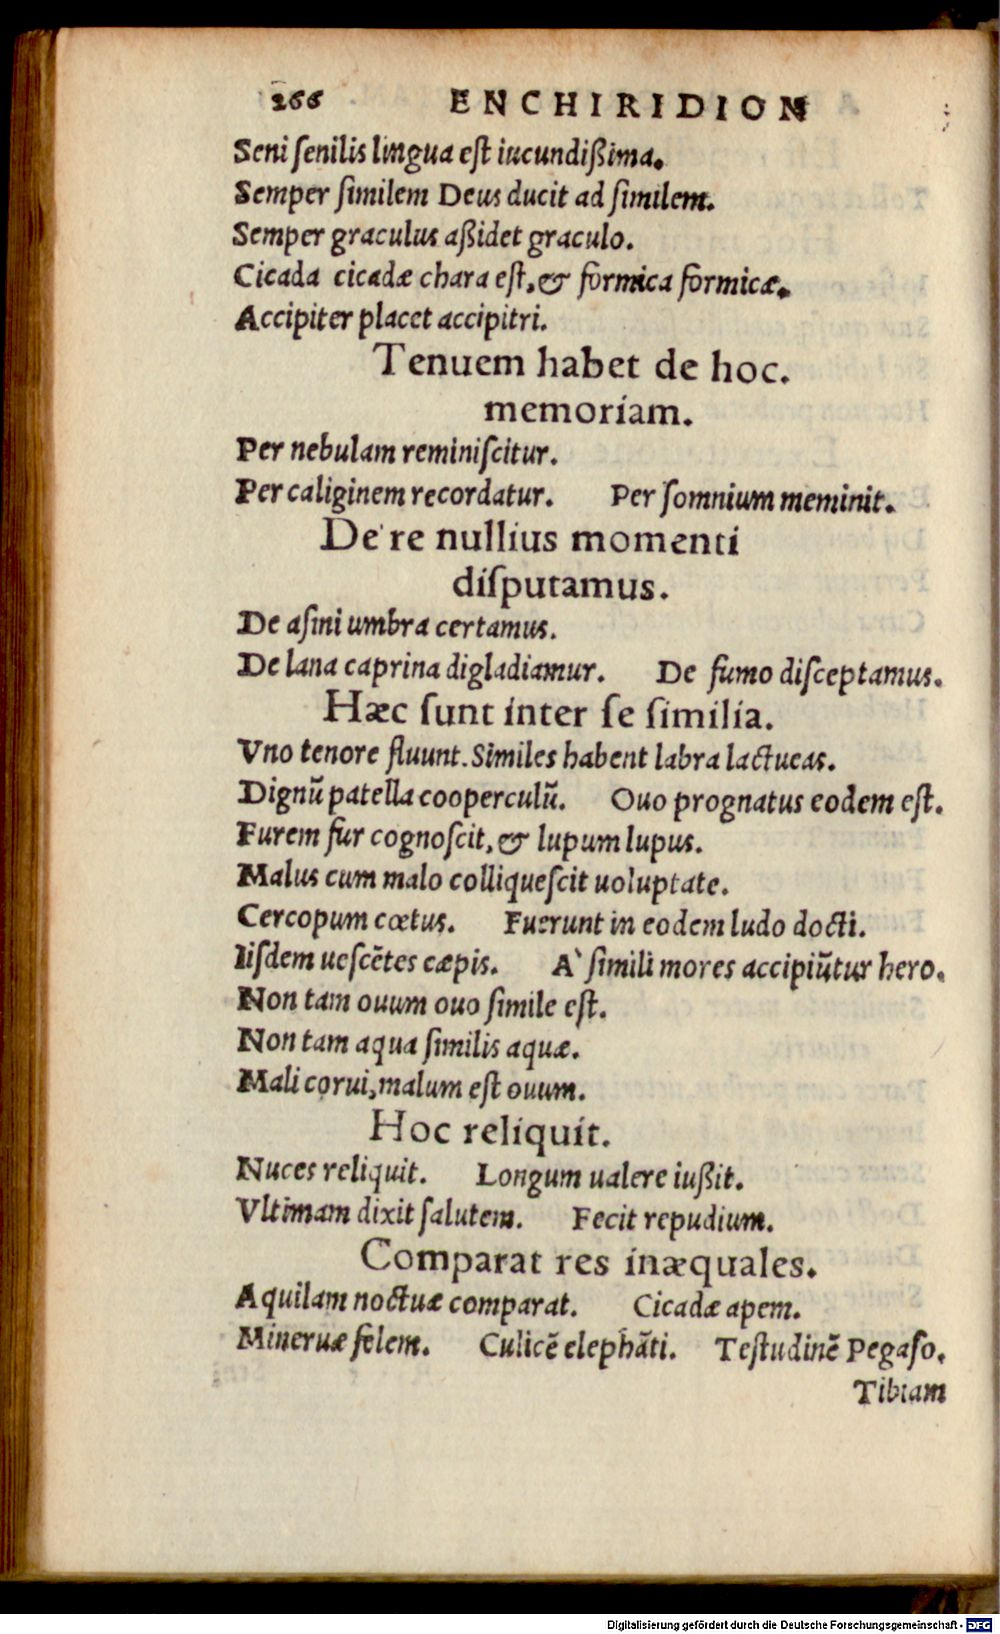 266 ENCHIRIDION
Seni ſenilis lingua eſt iucundißima.
Semper ſimilem Deus ducit ad ſimilem.
Semper graculus aßidet graculo.
Cicada cicadæ chara eſt, & formica formicæ.
Accipiter placet accipitri.
Tenuem habet de hoc.
memoriam.
Per nebulam reminiſcitur.
Per caliginem recordatur. Per ſomnium meminit.
De re nullius momenti
diſputamus.
De aſini umbra certamus.
De lana caprina digladiamur. De fumo diſceptamus.
Hæc ſunt inter ſe ſimilia.
Vno tenore fluunt. Similes habent labra lactucas.
Dignũ patella cooperculũ. Ouo prognatus eodem eſt.
Furem fur cognoſcit, & lupum lupus.
Malus cum malo colliqueſcit uoluptate.
Cercopum cœtus. Fuerunt in eodem ludo docti.
Iiſdem ueſcẽtes cæpis. A` ſimili mores accipiũtur hero.
Non tam ouum ouo ſimile eſt.
Non tam aqua ſimilis aquæ.
Mali corui, malum eſt ouum.
Hoc reliquit.
Nuces reliquit. Longum ualere iußit.
Vltimam dixit ſalutem. Fecit repudium.
Comparat res inæquales.
Aquilam noctuæ comparat. Cicadæ apem.
Mineruæ felem. Culicẽ elephãti. Teſtudinẽ Pegaſo.
Tibiam
Digitalisierung gefördert durch die Deutsche Forschungsgemeinschaft - DFG